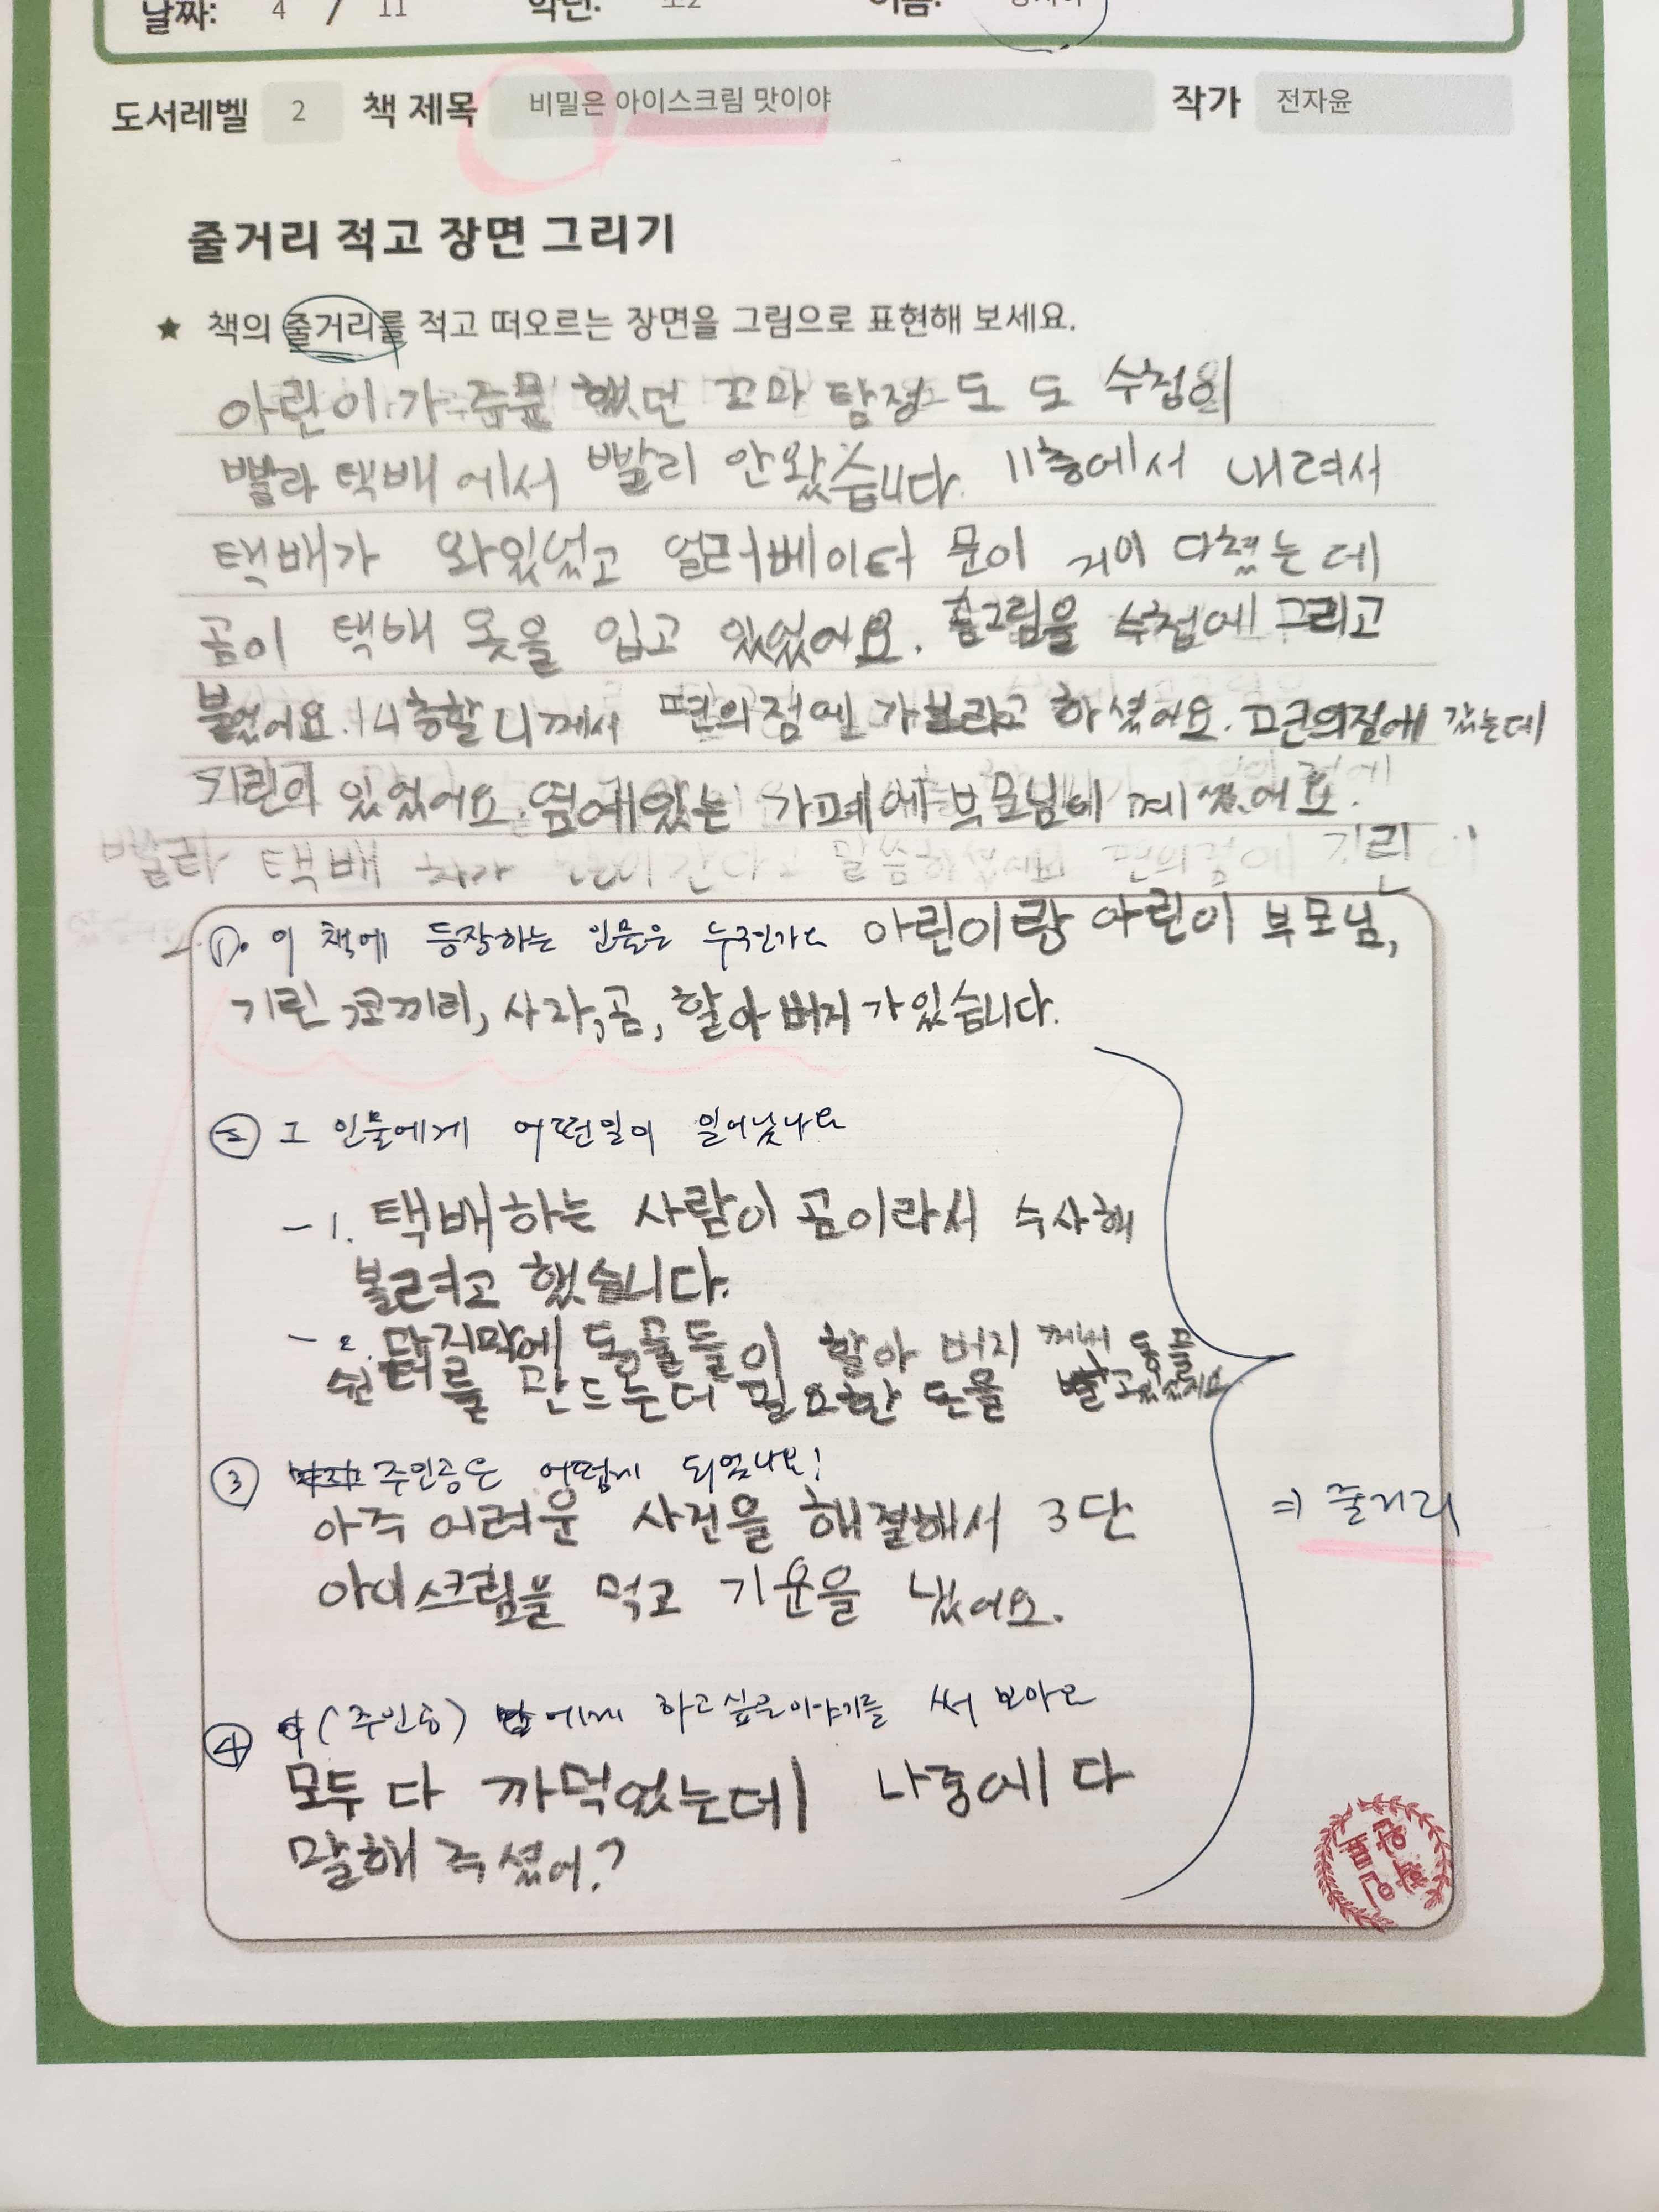 날짜: 4 / 11 학년: 초2 이름:
도서레벨 2 책 제목 비밀은 아이스크림 맛이야 작가 전자윤
줄거리 적고 장면 그리기
★ 책의 줄거리를 적고 떠오르는 장면을 그림으로 표현해 보세요.
아린이가 주문 했던 꼬마 탐정 도 도 수첩이
빨라 택배에서 빨리 안왔습니다. 11층에서 내려서
택배가 와있었고 얼러베이터 문이 거이 다쳤는데
곰이 택배 옷을 입고 있었어요. 곰그림을 수첩에 그리고
물었어요. 14층할니께서 편의점엔 가보라고 하셨어요. 편의점에 갔는데
기린이 있었어요. 옆에있는 가페에 부모님이 계셨어요.
빨라 택배 차가 말씀하셨 편의점에 기린이
①. 이 책에 등장하는 인물은 누구인가요 아린이랑 아린이 부모님,
기린 코끼리, 사자, 곰, 할아버지가 있습니다.
② 그 인물에게 어떤일이 일어났나요
- 1. 택배하는 사람이 곰이라서 수사해
볼려고 했습니다.
- 2. 마지막에 동물들이 할아버지 께서 동물
쉼터를 만드는데 필요한 돈을
③ 주인공은 어떻게 되었나요!
아주 어려운 사건을 해결해서 3단
아이스크림을 먹고 기운을 냈어요.
⇒ 줄거리
④ (주인공) 에게 하고싶은이야기를 써 보아요
모두 다 까먹었는데 나중에 다
말해 주셨어?